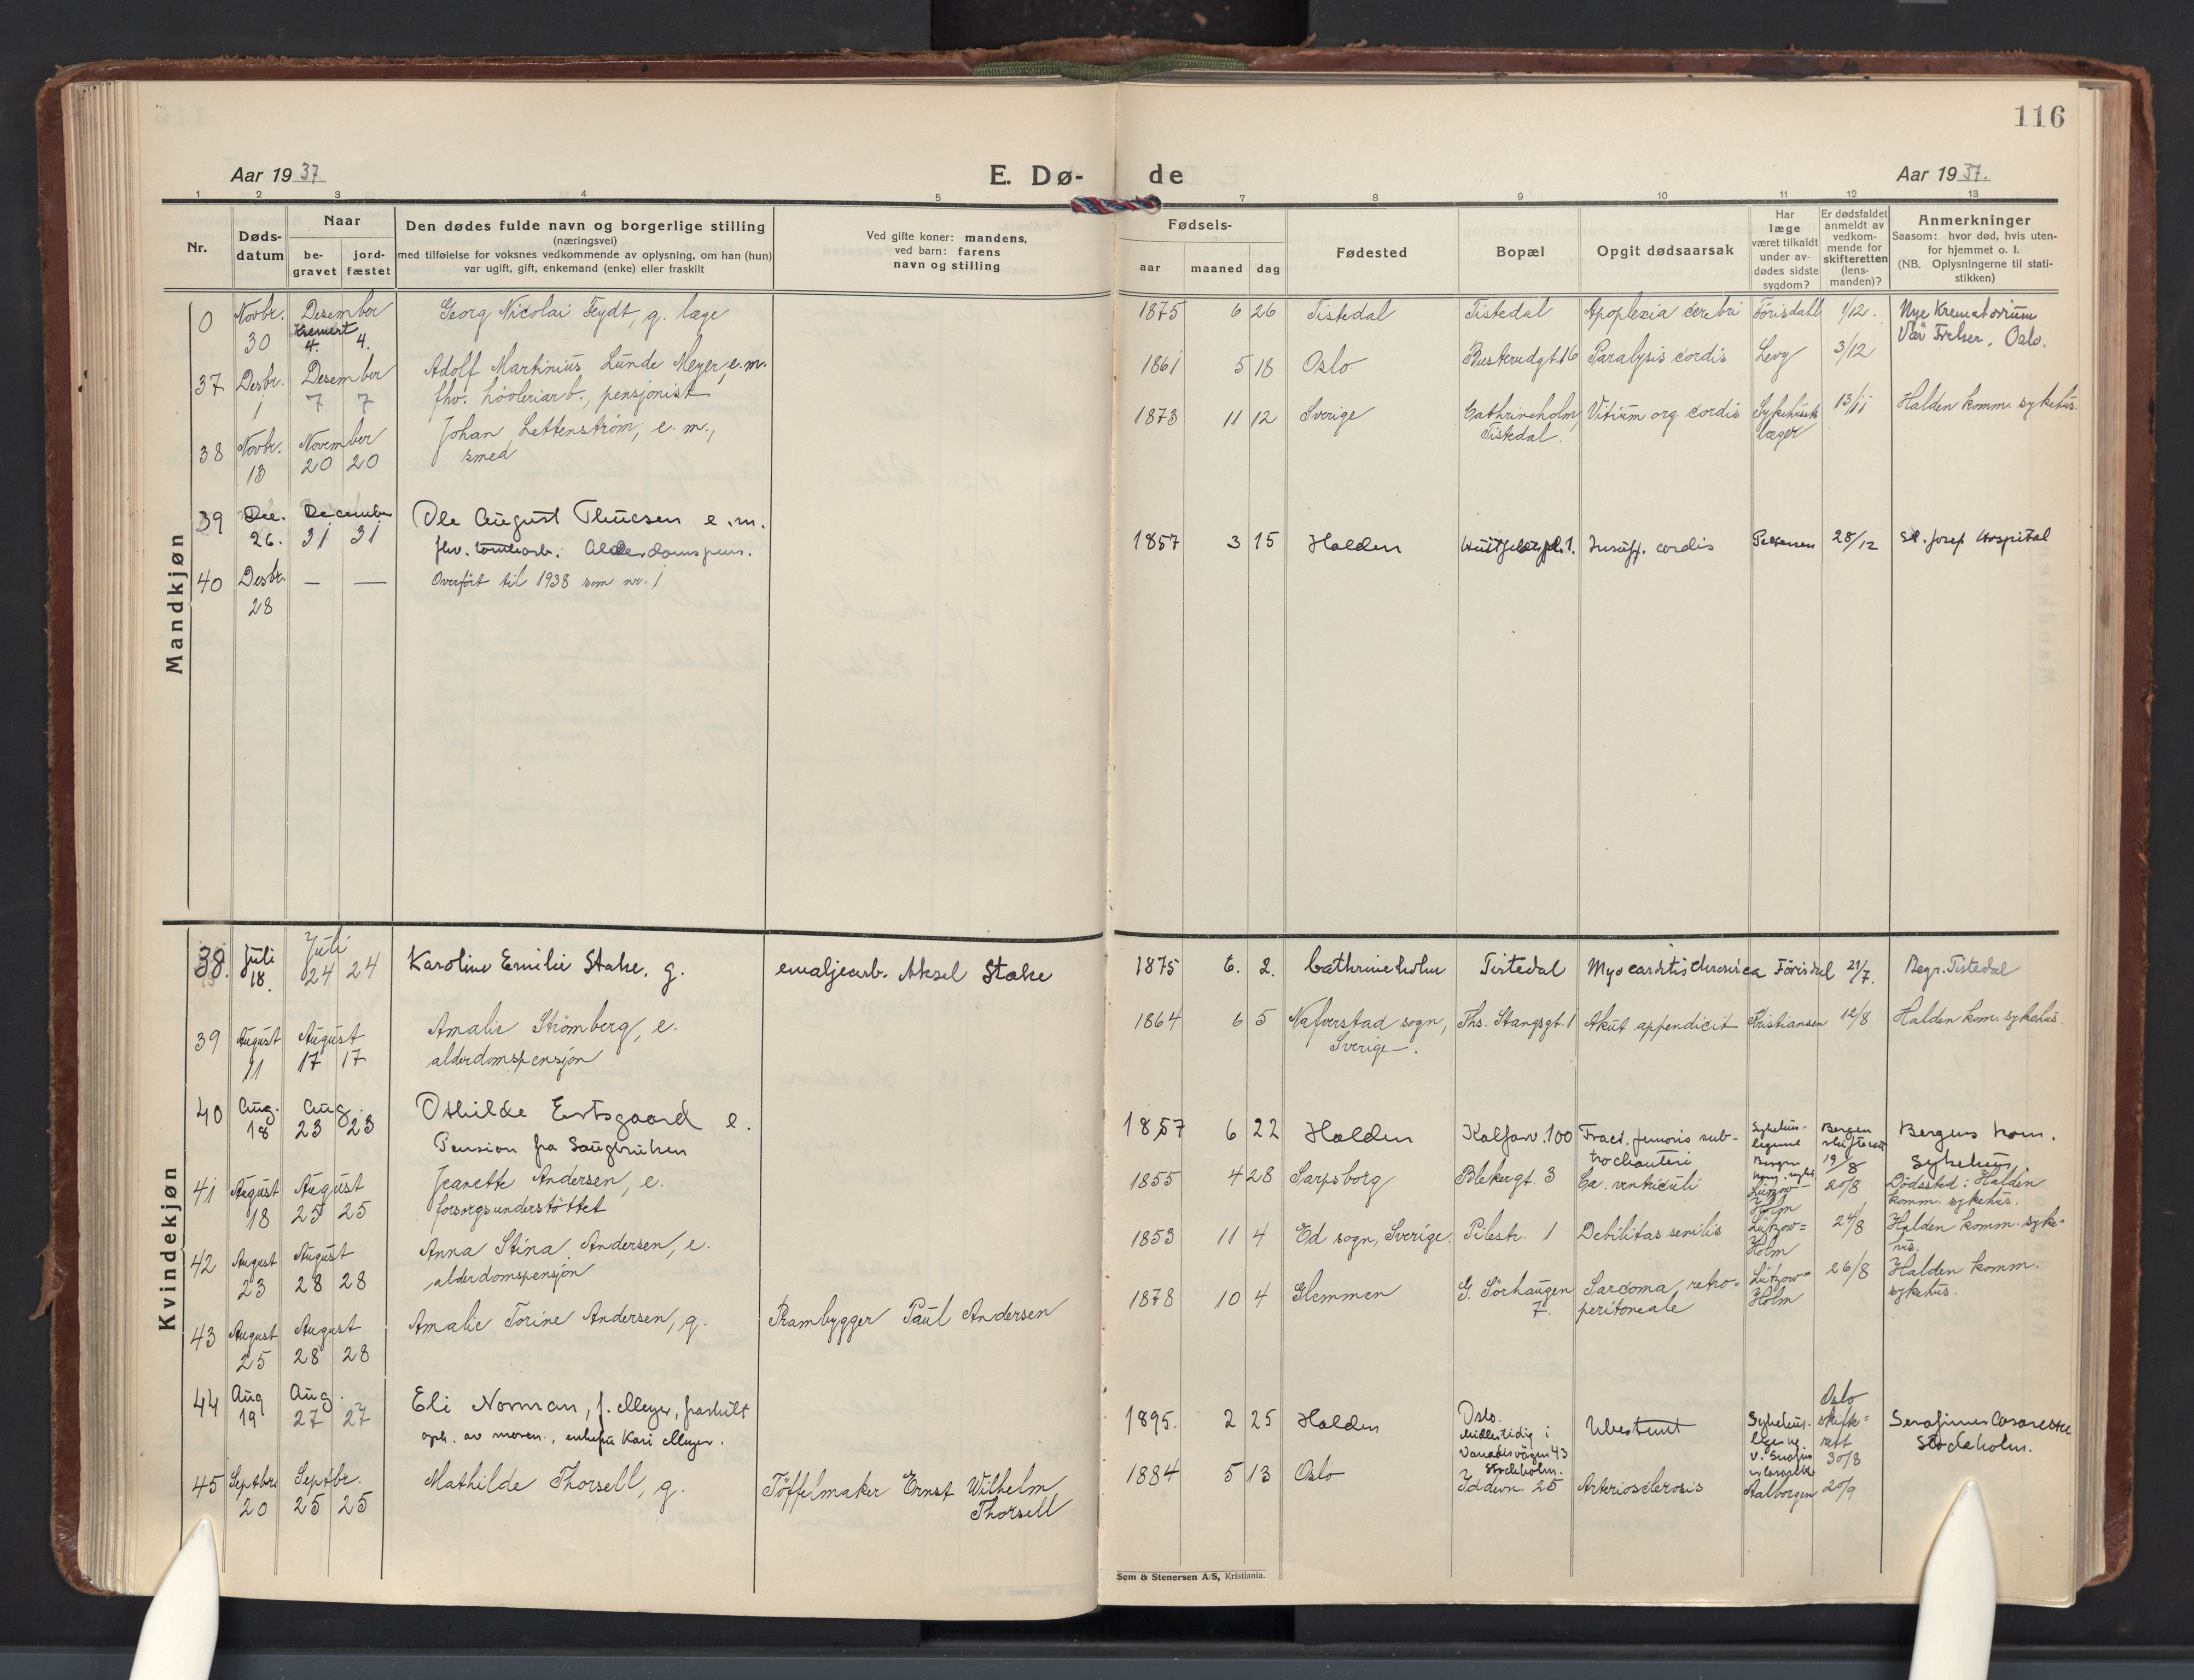 116
Aar 1937
E. Dø-
de
Aar 1937.
1 2 3 4 5 7 8 9 10 11 12 13
Nr.
Døds-
datum
Naar
be-
gravet
jord-
fæstet
Den dødes fulde navn og borgerlige stilling
(næringsvei)
med tilføielse for voksnes vedkommende av oplysning, om han (hun)
var ugift, gift, enkemand (enke) eller fraskilt
Ved gifte koner: mandens,
ved barn: farens
navn og stilling
Fødsels-
aar maaned dag
Fødested
Bopæl
Opgit dødsaarsak
Har
læge
været tilkaldt
under av-
dødes sidste
sygdom?
Er dødsfaldet
anmeldt av
vedkom-
mende for
skifteretten
(lens-
manden)?
Anmerkninger
Saasom: hvor død, hvis uten-
for hjemmet o. l.
(NB. Oplysningerne til stati-
stikken)
Mandkjøn
0 Novbr. Desember Georg Nicolai Feydt, g. læge 1875 6 26 Tistedal Tistedal Apoplexia cerebri Förisdahl 1/12. Nye Krematorium
30 Kremert 4. 4. Vår Frelser, Oslo.
37 Desbr. Desember Adolf Martinius Lunde Meyer, e.m. 1861 5 18 Oslo Busterudgt. 16 Paralysis cordis Levy 3/12
1 7 7 fhv. høvleriarb., pensjonist
38 Novbr. November Johan Lettenström, e. m., 1873 11 12 Sverige Cathrineholm, Vitium org. cordis Sykehusets 13/11 Halden komm. sykehus.
13 20 20 smed Tistedal. læger
39 Dec. December Ole August Thuesen e.m. 1857 3 15 Halden 1. Insuff. cordis 28/12 St. Josep Hospital
26. 31 31 fhv. tomtearb. Alderdomspens.
40 Desbr. — — Overfört til 1938 som nr. 1
28
Kvindekjøn
38. Juli Juli Karoline Emilie Stake, g. emaljearb. Aksel Stake 1875 6. 2. Cathrineholm Tistedal Myocarditis chronica Förisdal 21/7. Begr. Tistedal
18. 24 24
39 August August Amalie Strömberg, e. 1864 6 5 Nafverstad sogn, Ths. Stangsgt. 1 Akut appendicit Kristiansen 12/8 Halden kom. sykehus.
11 17 17 alderdomspensjon Sverige—.
40 Aug. Aug. Othilde Ertsgaard e. 1857 6 22 Halden Kalfarv. 100 Fract. femoris sub- Sykehus- Bergen Bergens kom.
18 23 23 Pension fra Saugbruken trochanteri legene skifterett Sykehus.
19/8
41 August August Jeanette Andersen, e. 1855 4 28 Sarpsborg Blekergt. 3 Ca. ventriculi Lützow- 20/8 Dödssted: Halden
18 25 25 forsorgsunderstöttet Holm komm. sykehus.
42 August August Anna Stina Andersen, e. 1853 11 4 Ed sogn, Sverige. Pilestr. 1 Debilitas senilis Lützow= 24/8 Halden komm. syke=
23 28 28 alderdomspensjon Holm hus.
43 August August Amalie Torine Andersen, g. Prambygger Paul Andersen 1878 10 4 Glemmen G. Sörhaugen Sarcoma retro= Lützow= 26/8 Halden komm.
25 28 28 7. peritoneale Holm sykehus.
44 Aug Aug. Eli Norman, f. Meyer, fraskilt 1895. 2 25 Halden Oslo. Ubestemt Sykehus- Oslo Serafimer Lasarettet
19 27 27 oph. av moren, enkefru Kari Meyer. Midlertidig i legene skifte= Stockholm.
Vanadisvägen 43 rett
Stockholm. 30/8
45 Septbr. Septbr. Mathilde Thorsell, g. Töffelmaker Ernst Wilhelm 1884 5 13 Oslo Iddevn. 25 Arteriosclerosis Aalborgen 20/9
20 25 25 Thorsell
Sem & Stenersen A/S, Kristiania.